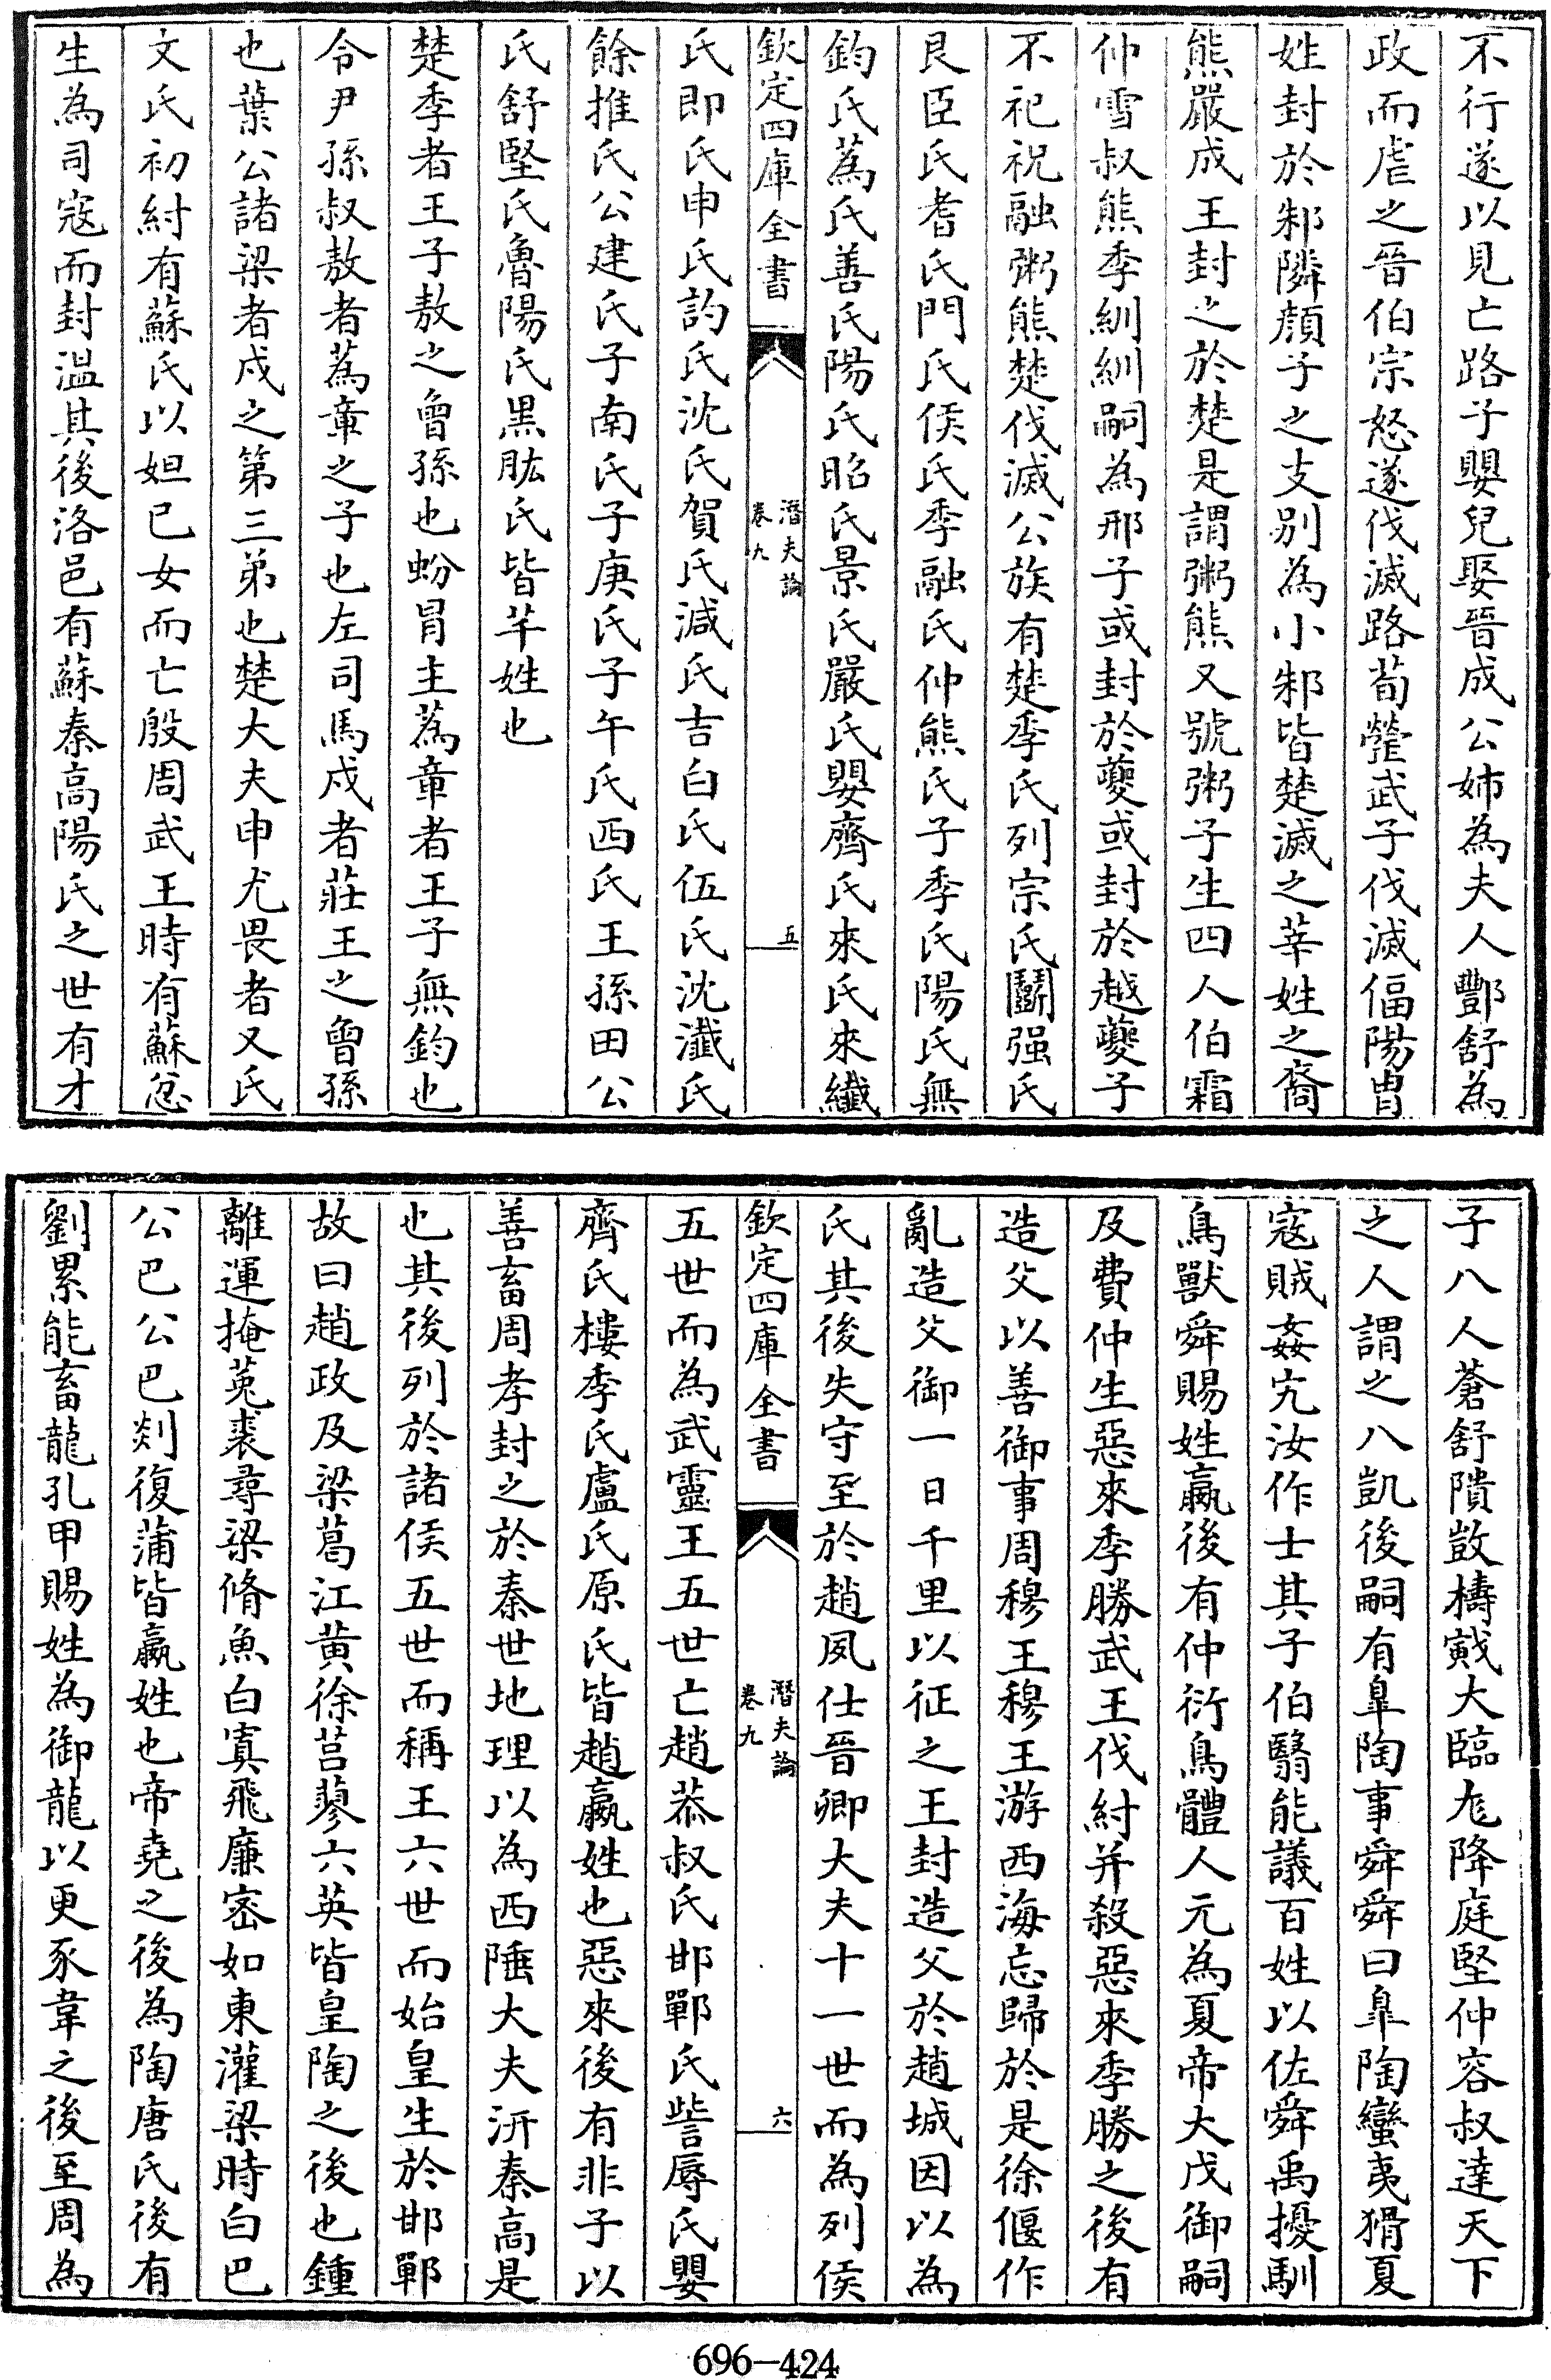 不行遂以見亡路子嬰兒娶晉成公姊為夫人酆舒為
政而虐之晉伯宗怒遂伐滅路荀罃武子伐滅偪陽曹
姓封於邾隣顔子之支别為小邾皆楚滅之芈姓之裔
熊嚴成王封之於楚是謂粥熊又號粥子生四人伯霜
仲雪叔熊季紃紃嗣為邢子或封於夔或封於越夔子
不祀祝融粥熊楚伐滅公族有楚季氏列宗氏鬬强氏
艮臣氏耆氏門氏侯氏季融氏仲熊氏子季氏陽氏無
鈞氏蒍氏善氏陽氏昭氏景氏嚴氏嬰齊氏來氏來纎
欽定四庫全書
潛夫論
卷九
五
氏即氏申氏訋氏沈氏賀氏減氏吉白氏伍氏沈瀐氏
餘推氏公建氏子南氏子庚氏子午氏西氏王孫田公
氏舒堅氏魯陽氏黒肱氏皆芊姓也
楚季者王子敖之曾孫也蚡冒主蒍章者王子無鈞也
令尹孫叔敖者蒍章之子也左司馬戍者莊王之曾孫
也葉公諸梁者戍之第三弟也楚大夫申尤畏者又氏
文氏初紂有蘇氏以妲己女而亡殷周武王時有蘇忿
生為司宼而封温其後洛邑有蘇秦高陽氏之世有才
子八人蒼舒隤敳檮戭大臨尨降庭堅仲容叔達天下
之人謂之八凱後嗣有臯陶事舜舜曰臯陶蠻夷猾夏
宼賊姦宄汝作士其子伯翳能議百姓以佐舜禹擾馴
鳥獸舜賜姓嬴後有仲衍鳥體人元為夏帝大戊御嗣
及費仲生惡來季勝武王伐紂并殺惡來季勝之後有
造父以善御事周穆王穆王游西海忘歸於是徐偃作
亂造父御一日千里以征之王封造父於趙城因以為
氏其後失守至於趙夙仕晉卿大夫十一世而為列侯
欽定四庫全書
潛夫論
卷九
六
五世而為武靈王五世亡趙恭叔氏邯鄲氏訾辱氏嬰
齊氏樓季氏盧氏原氏皆趙嬴姓也惡來後有非子以
善畜周孝封之於秦世地理以為西陲大夫汧秦高是
也其後列於諸侯五世而稱王六世而始皇生於邯鄲
故曰趙政及梁葛江黄徐莒蓼六英皆皇陶之後也鍾
離運掩菟裘尋梁脩魚白寘飛廉密如東灌梁時白巴
公巴公巴剡復蒲皆嬴姓也帝堯之後為陶唐氏後有
劉累能畜龍孔甲賜姓為御龍以更豕韋之後至周為
696-424